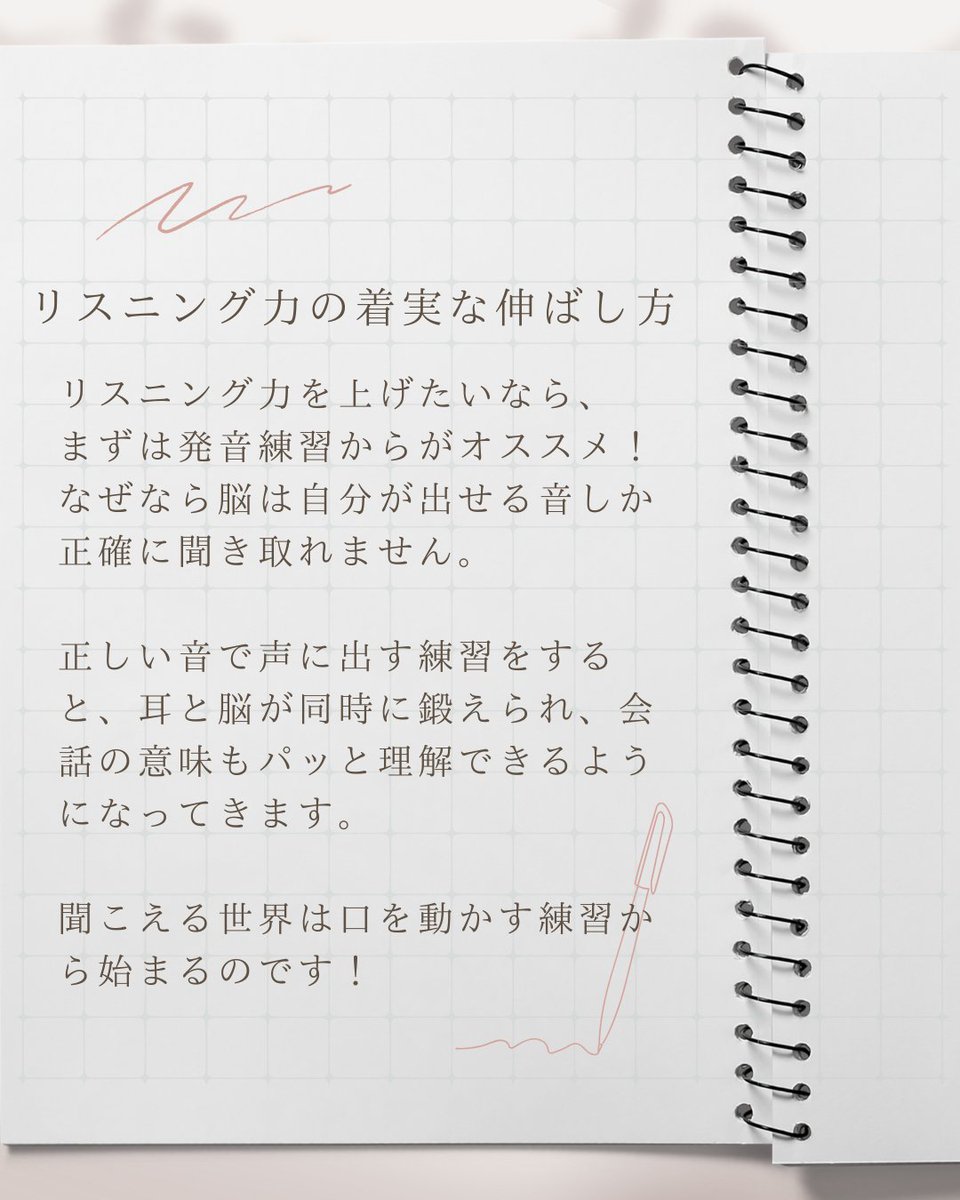 リスニング力の着実な伸ばし方
リスニング力を上げたいなら、
まずは発音練習からがオススメ！
なぜなら脳は自分が出せる音しか
正確に聞き取れません。
正しい音で声に出す練習をする
と、耳と脳が同時に鍛えられ、会
話の意味もパッと理解できるよう
になってきます。
聞こえる世界は口を動かす練習か
ら始まるのです！